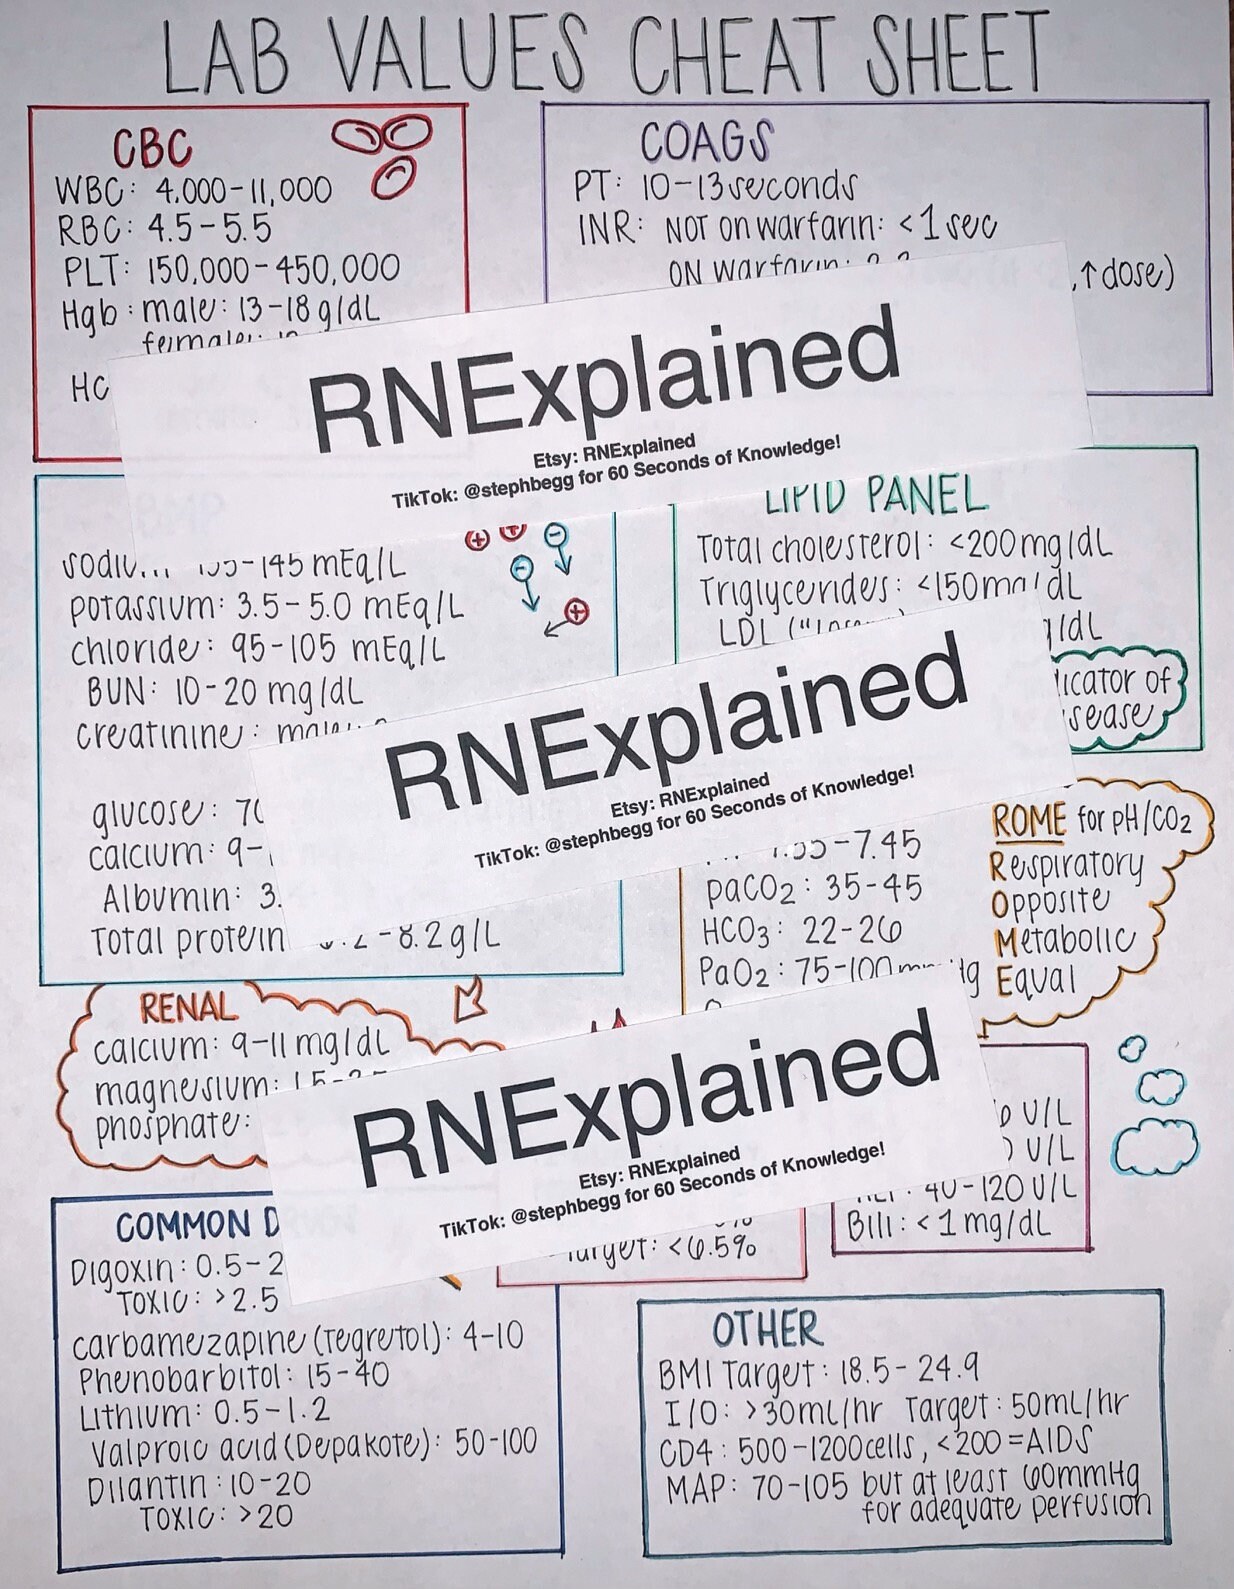 LAB VALUES CHEAT SHEET
CBC
WBC: 4,000-11,000
RBC: 4.5-5.5
PLT: 150,000-450,000
Hgb: male: 13-18 g/dL
female:
HC
COAGS
PT: 10-13 seconds
INR: NOT on warfarin: <1 sec
ON warfarin:
, ↑dose)
RNExplained
Etsy: RNExplained
TikTok: @stephbegg for 60 Seconds of Knowledge!
-145 mEq/L
potassium: 3.5-5.0 mEq/L
chloride: 95-105 mEq/L
BUN: 10-20 mg/dL
creatinine: male:
glucose: 70
calcium: 9-
Albumin: 3.
Total protein -8.2 g/L
LIPID PANEL
Total cholesterol: <200 mg/dL
Triglycerides: <150 mg/dL
LDL
g/dL
icator of
sease
RNExplained
Etsy: RNExplained
TikTok: @stephbegg for 60 Seconds of Knowledge!
-7.45
paCO2: 35-45
HCO3: 22-26
PaO2: 75-100 mmHg
ROME for pH/CO2
Respiratory
Opposite
Metabolic
Equal
RENAL
calcium: 9-11 mg/dL
magnesium:
phosphate:
RNExplained
Etsy: RNExplained
TikTok: @stephbegg for 60 Seconds of Knowledge!
U/L
U/L
40-120 U/L
Bili: <1 mg/dL
Target: <6.5%
COMMON D
Digoxin: 0.5-2
TOXIC: >2.5
carbamezapine (Tegretol): 4-10
Phenobarbitol: 15-40
Lithium: 0.5-1.2
Valproic acid (Depakote): 50-100
Dilantin: 10-20
TOXIC: >20
OTHER
BMI Target: 18.5-24.9
I/O: >30mL/hr Target: 50mL/hr
CD4: 500-1200cells, <200=AIDS
MAP: 70-105 but at least 60mmHg
for adequate perfusion